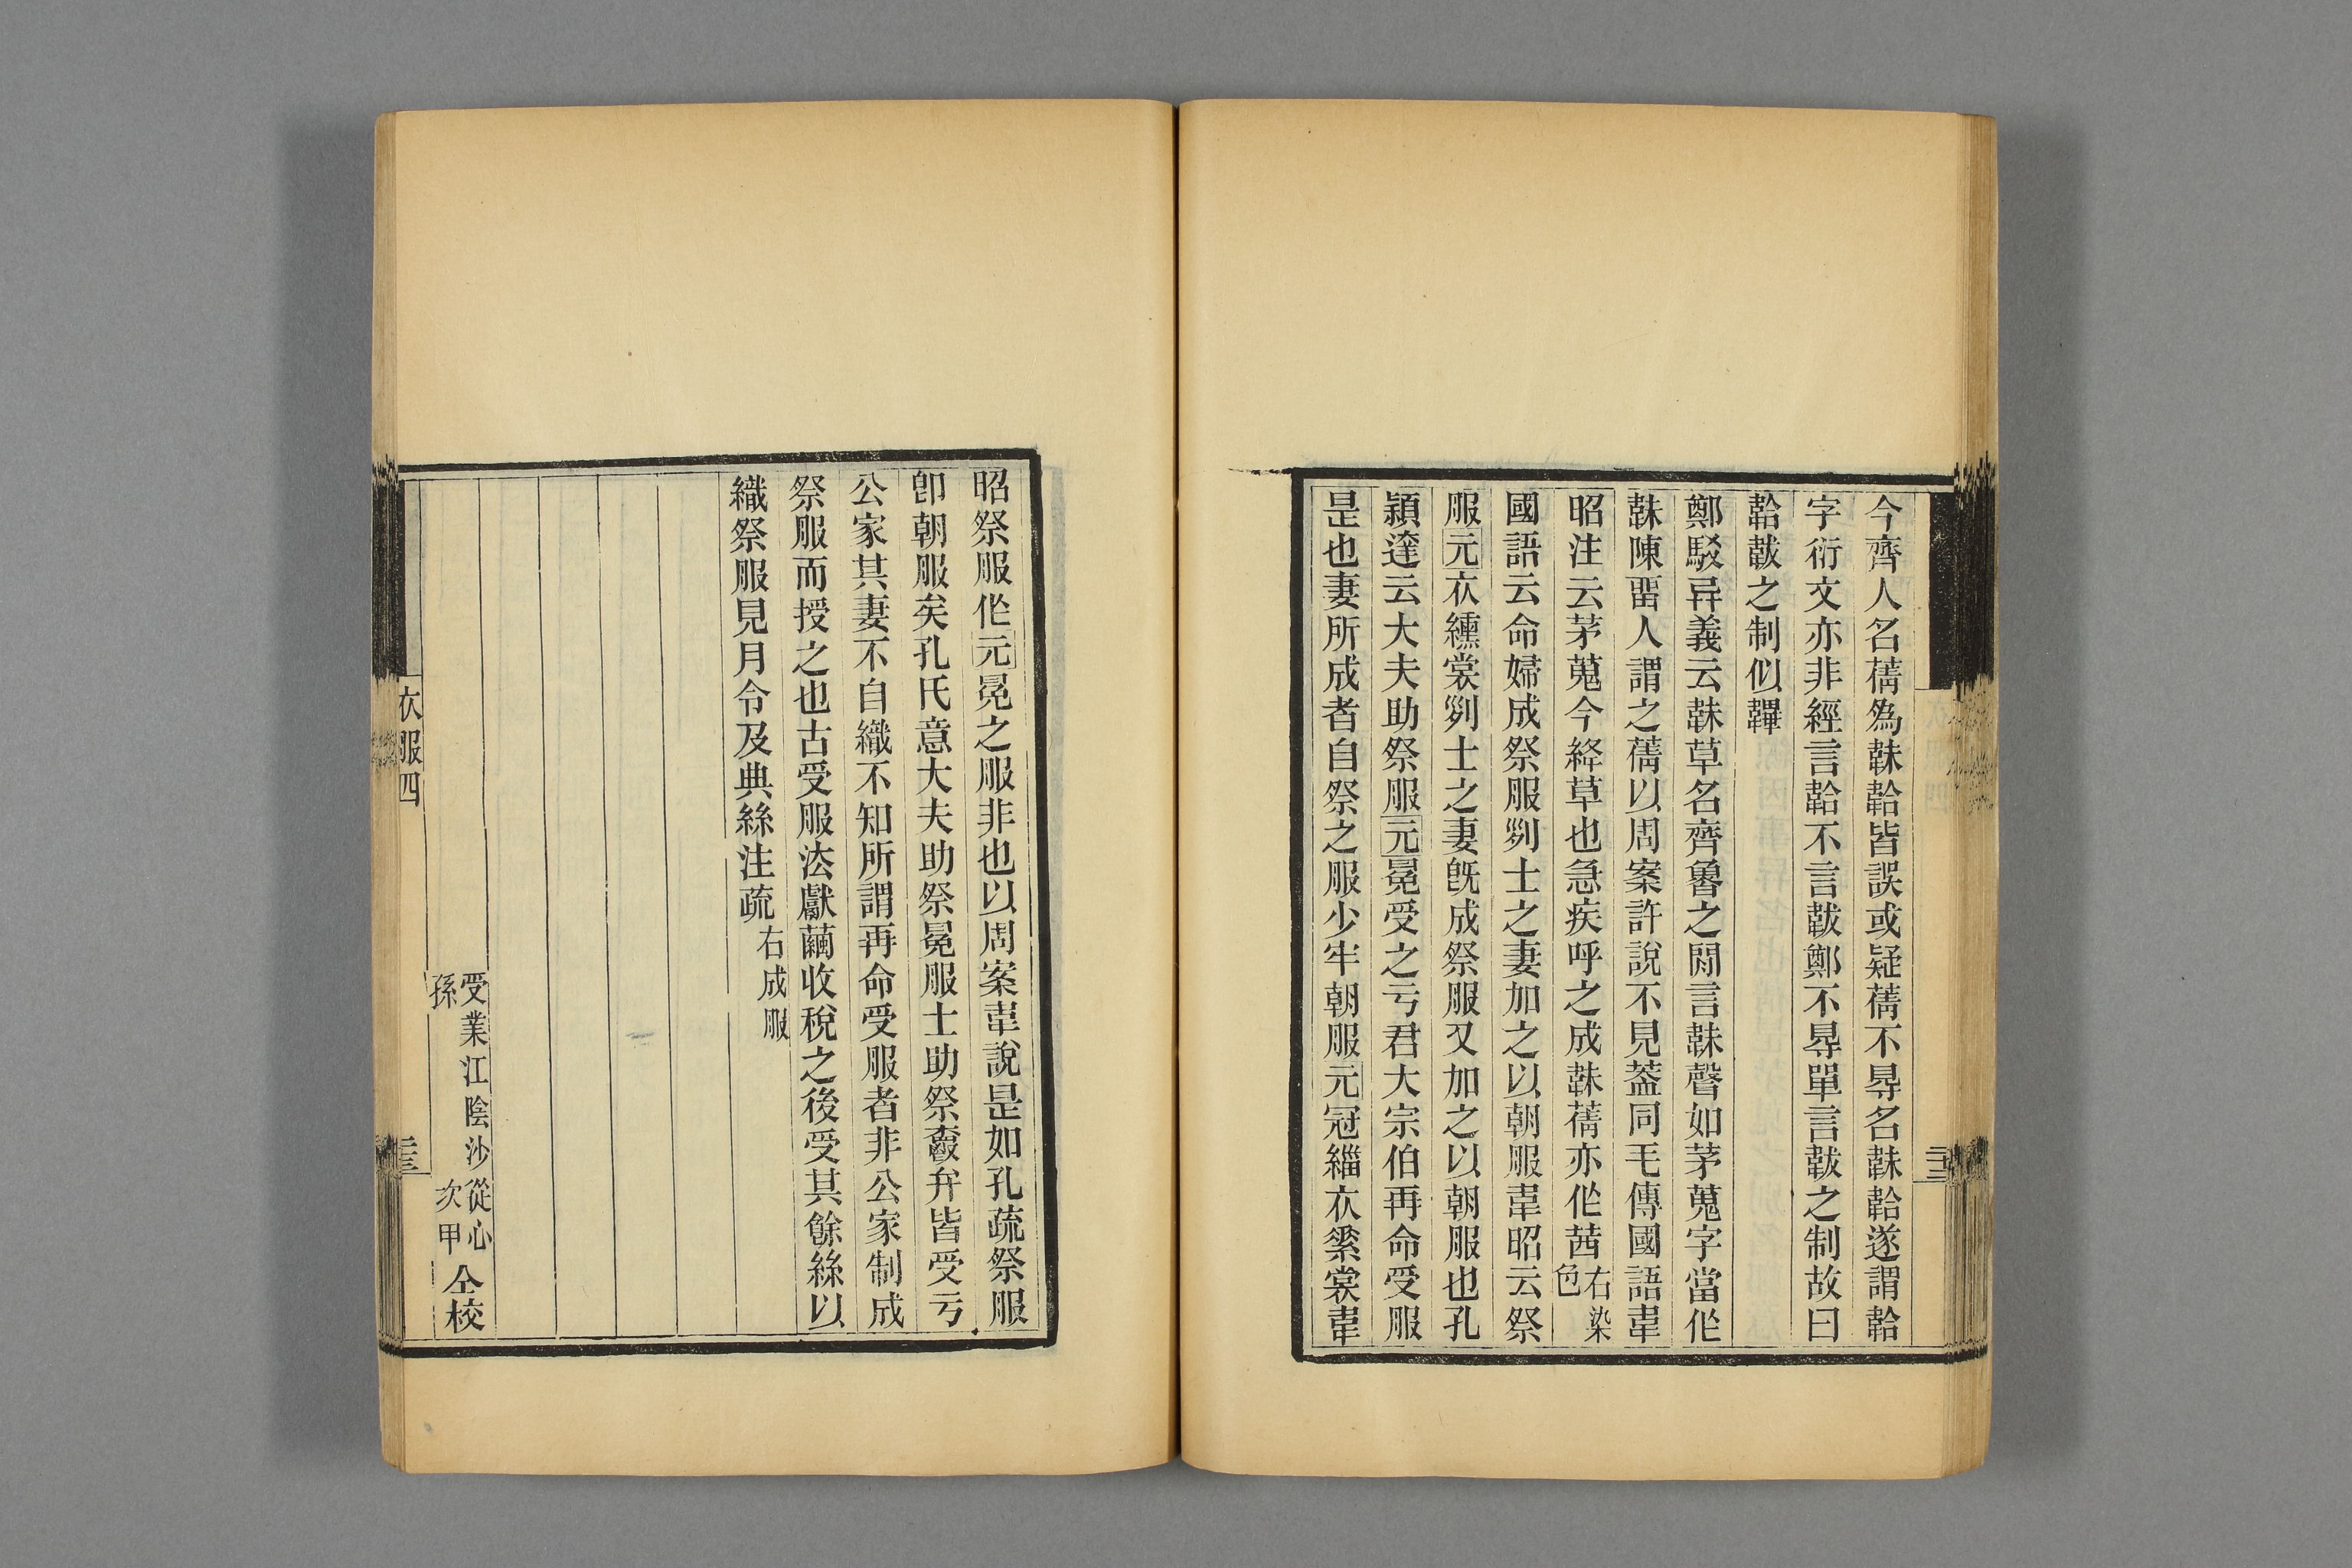 今齊人名蒨為韎韐皆誤或疑蒨不㝵名韎韐遂謂韐
字衍文亦非經言韐不言韍鄭不㝵單言韍之制故曰
韐韍之制似韠
鄭駁异義云韎草名齊魯之閒言韎聲如茅蒐字當㑅
韎陳畱人謂之蒨以周案許說不見葢同毛傳國語韋
昭注云茅蒐今絳草也急疾呼之成韎蒨亦㑅茜右染色
國語云命婦成祭服列士之妻加之以朝服韋昭云祭
服元衣纁裳列士之妻旣成祭服又加之以朝服也孔
穎達云大夫助祭服元冕受之亏君大宗伯再命受服
是也妻所成者自祭之服少牢朝服元冠緇衣素裳韋
昭祭服㑅元冕之服非也以周案韋說是如孔疏祭服
卽朝服矣孔氏意大夫助祭冕服士助祭爵弁皆受亏
公家其妻不自織不知所謂再命受服者非公家制成
祭服而授之也古受服法獻繭收稅之後受其餘絲以
織祭服見月令及典絲注疏右成服
受業江陰沙從心
孫次甲
仝校
衣服四
二十三